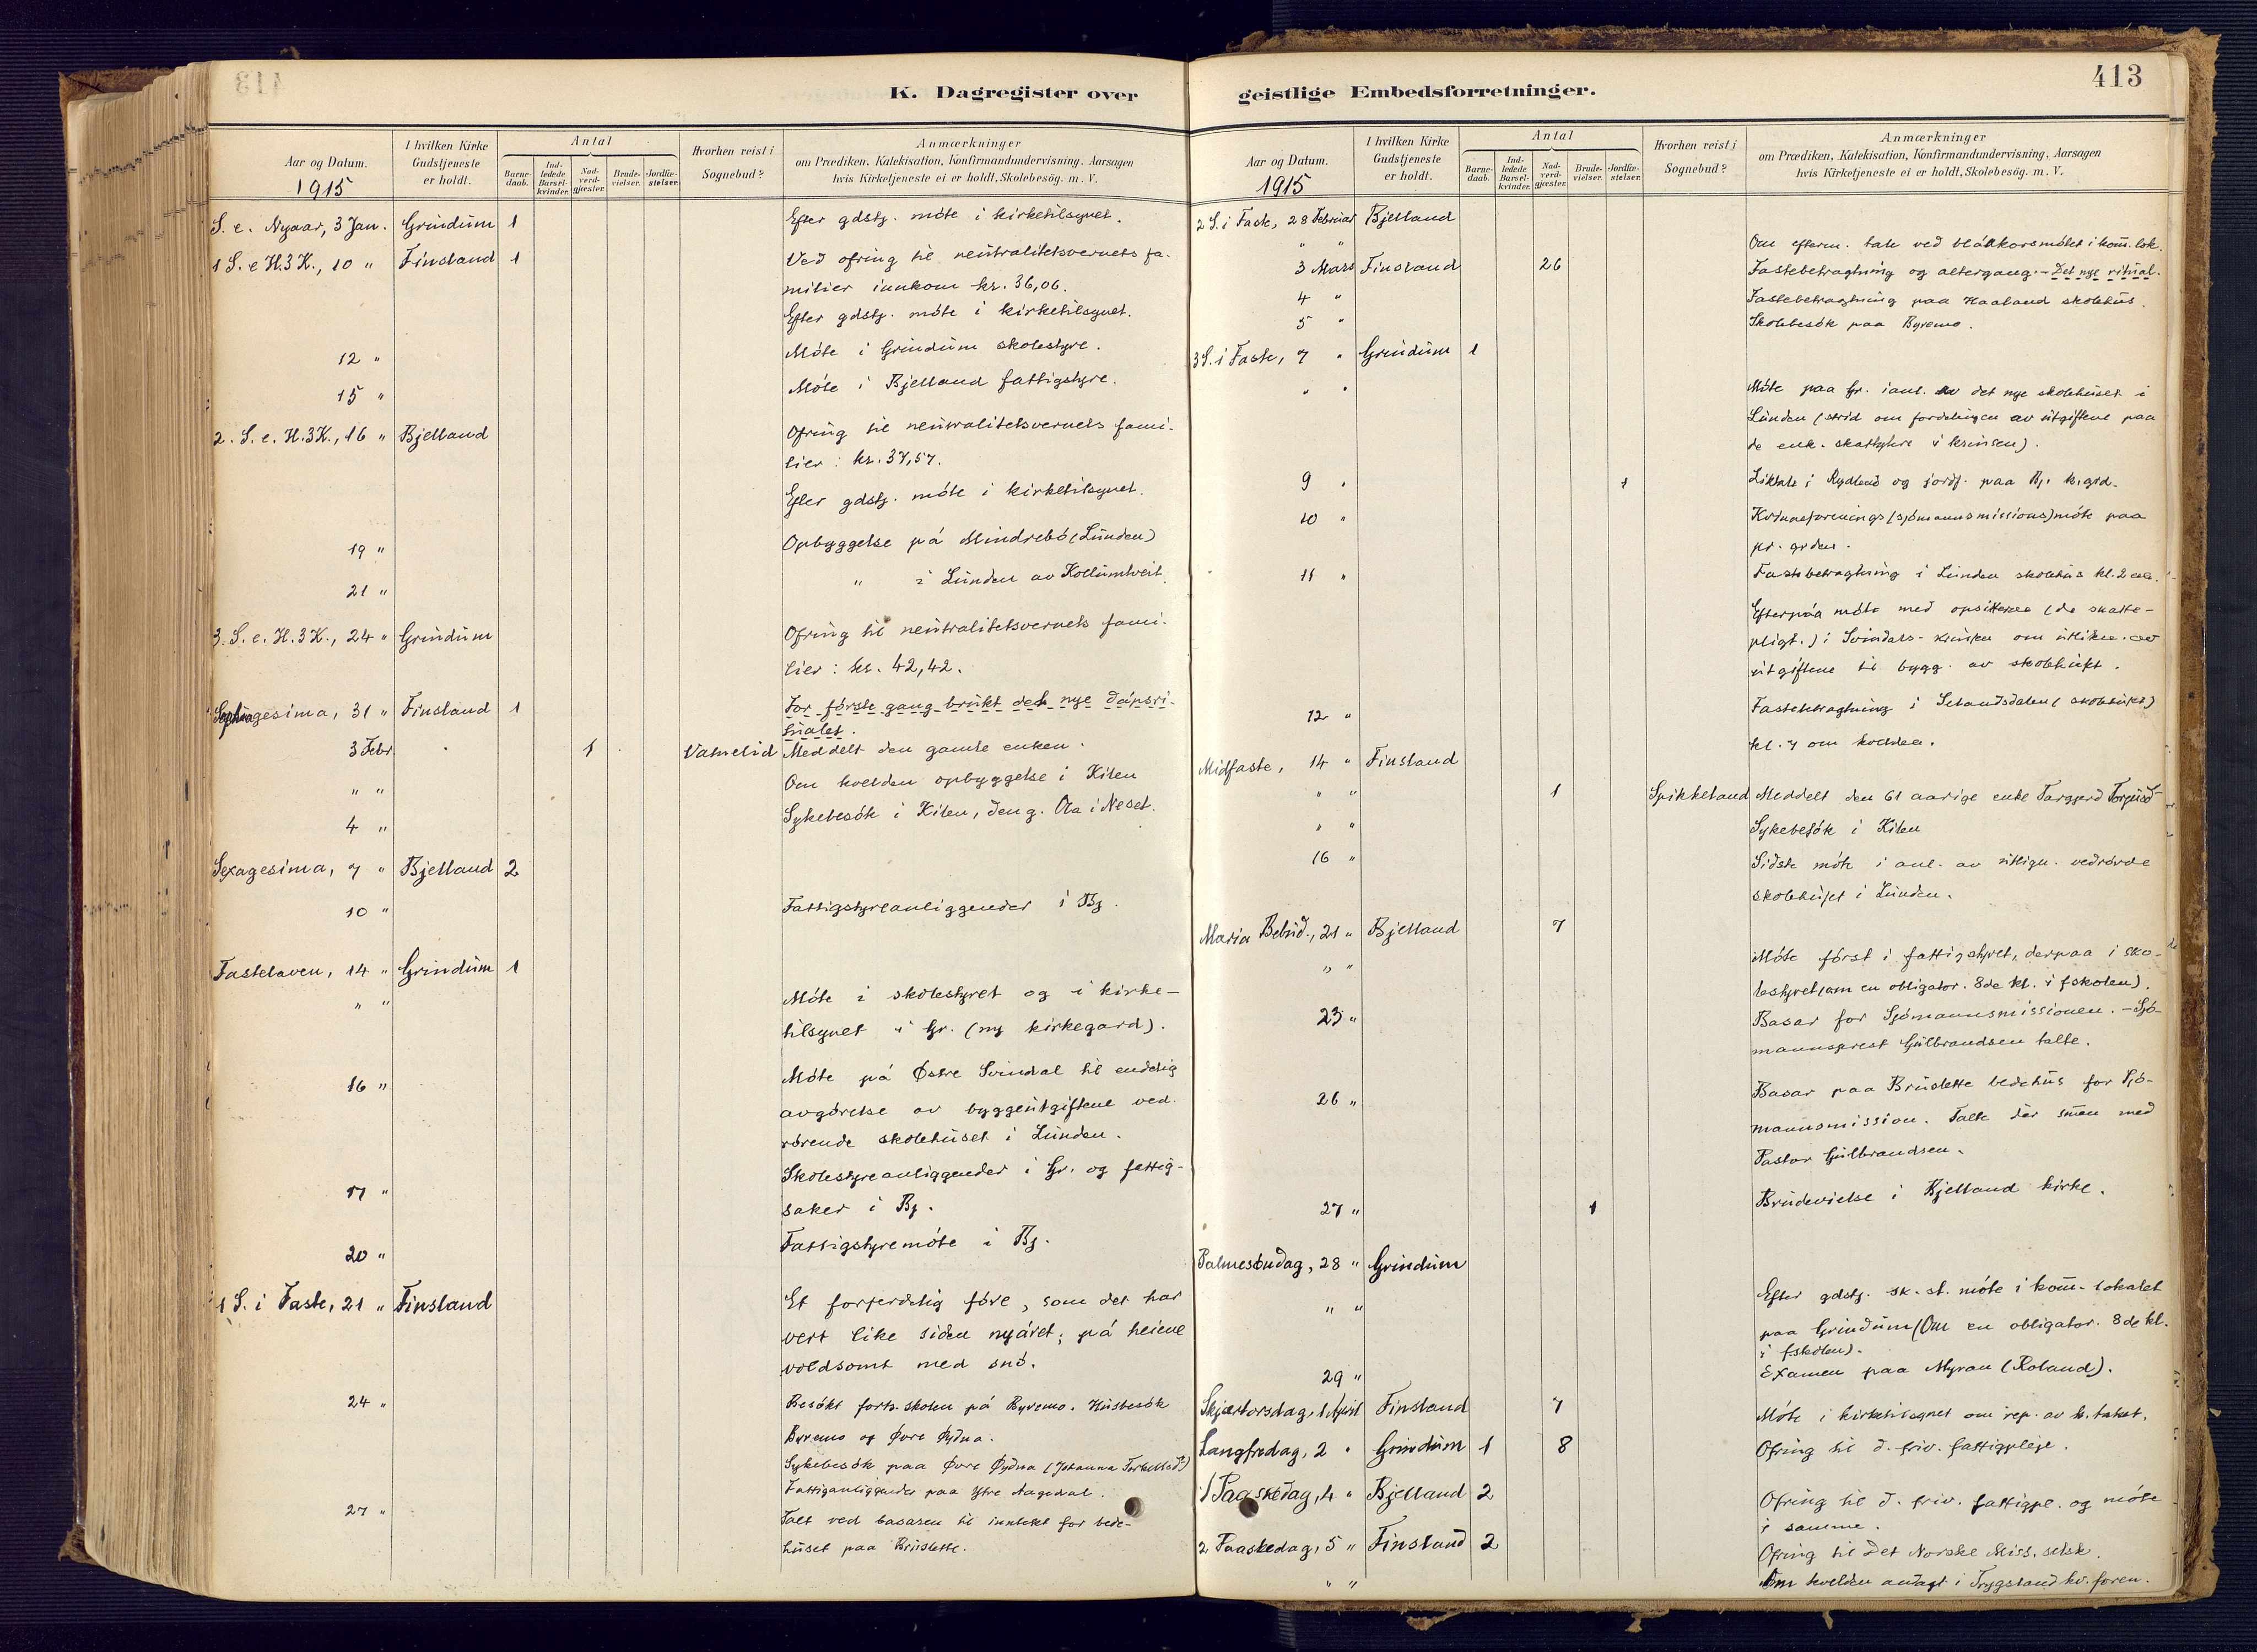 K. Dagregister over
Aar og Datum.
1915
I hvilken Kirke Gudstjeneste er holdt.
Antal
Barne-daab.
Ind-ledede Barsel-kvinder.
Nad-verd-gjester.
Brude-vielser.
Jordfæ-stelser.
Hvorhen reist i Sognebud?
Anmærkninger
om Prædiken, Katekisation, Konfirmandundervisning, Aarsagen
hvis Kirketjeneste ei er holdt, Skolebesög. m. V.
S. e. Nyaar, 3 Jan. Grindum 1 Efter gdstj. møte i kirketilsynet.
1 S. e H.3 K., 10 " Finsland 1 Ved ofring til neutralitetsvernets fa-
milier innkom kr. 36,06.
Efter gdstj. møte i kirketilsynet.
12 " Møte i Grindum skolestyre.
15 " Møte i Bjelland fattigstyre.
2. S. e. H.3K., 16 " Bjelland Ofring til neutralitetsvernets fami-
lier : kr. 37,57.
Efter gdstj. møte i kirketilsynet.
19 " Opbyggelse på Mindrebø (Lunden)
21 " " i Lunden av Kollumtveit.
3. S. e. H.3 K., 24 " Grindum Ofring til neutralitetsvernets fami-
lier : kr. 42,42.
Septuagesima, 31 " Finsland 1 For første gang brukt det nye dåpsri-
tualet.
3 Febr. 1 Vatnelid Meddelt den gamle enken.
" " Om kvelden opbyggelse i Kilen
4 " Sykebesøk i Kilen, den g. Ola i Neset.
Sexagesima, 7 " Bjelland 2
10 " Fattigstyreanliggender i Bj.
Fastelaven, 14 " Grindum 1
" " Møte i skolestyret og i kirke-
tilsynet i Gr. (ny kirkegard).
16 " Møte på Østre Svindal til endelig
avgørelse av byggeutgiftene ved-
rørende skolehuset i Lunden.
17 " Skolestyreanliggender i Gr. og fattig-
saker i Bj.
20 " Fattigstyremøte i Bj.
1 S. i Faste, 21 " Finsland Et forferdelig føre, som det har
vert like siden nyåret; på heiene
voldsomt med snø.
24 " Besøkt forts. skolen på Byremo. Husbesøk
Byremo og Øvre Øydna.
Sykebesøk paa Øvre Øydna (Johanna
Fattiganliggender paa Ytre Aagedal.
27 " Talt ved basaren til inntekt for bede-
huset paa Bruslette.
geistlige Embedsforretninger.
413
Aar og Datum.
1915
I hvilken Kirke Gudstjeneste er holdt.
Antal
Barne-daab.
Ind-ledede Barsel-kvinder.
Nad-verd-gjester.
Brude-vielser.
Jordfæ-stelser.
Hvorhen reist i Sognebud?
Anmærkninger
om Prædiken, Katekisation, Konfirmandundervisning, Aarsagen
hvis Kirketjeneste ei er holdt, Skolebesög. m. V.
2 S. i Faste, 28 Februar Bjelland
" " Om efterm. tale ved blåkorsmøtet i kom. lok.
3 Mars Finsland 26 Fastebetragtning og altergang. - Det nye ritual.
4 " Fastebetragtning paa Haaland skolehus.
5 " Skolebesøk paa Byremo.
3 S. i Faste, 7 " Grindum 1
" " Møte paa Gr. i anl. av det nye skolehuset i
Lunden (strid om fordelingen av utgiftene paa
de enk. skattytere i krinsen).
9 " 1 Liktale i Rydland og jordf. paa Bj. k.grd.
10 " Kvinneforenings (sjømannsmissions) møte paa
pr. grden.
11 " Fastebetragtning i Lunden skolehus kl. 2 em.
Efterpåa møte med opsitterne (de skatte-
pligt.) i Svindals-krinsen om utlikn. av
utgiftene til bygg. av skolehuset.
12 " Fastebetragtning i (skolehuset)
kl. 7 om kvelden.
Midfaste, 14 " Finsland
" " 1 Spikkeland Meddelt den 61 aarige enke Targjerd
" " Sykebesøk i Kilen
16 " Sidste møte i anl. av utlign. vedrørde
skolehuset i Lunden.
Maria Bebud., 21 " Bjelland 7
" " Møte først i fattigstyret, derpaa i sko-
lestyret (om en obligator. 8de kl. i fskolen).
23 " Basar for Sjømannsmissionen. - Sjø-
mannsprest Gulbrandsen talte.
26 " Basar paa Bruslette bedehus for Sjø-
mannsmission. Talte der smen med
Pastor Gulbrandsen.
27 " 1 Brudevielse i Bjelland kirke.
Palmesøndag, 28 " Grindum
" " Efter gdstj. sk. st. møte i kom-lokalet
paa Grindum (Om en obligator. 8de kl.
i fskolen).
29 " Examen paa Myran (Roland).
Skjærtorsdag, 1 April Finsland 7 Møte i kirketilsynet om rep. av k. taket.
Langfredag, 2 " Grindum 1 8 Ofring til d. friv. fattigpleje.
1 Paaskedag, 4 " Bjelland 2 Ofring til d. friv. fattigpl. og møte
i samme.
2 Paaskedag, 5 " Finsland 2 Ofring til Det Norske Miss. selsk.
" " Om kvelden andagt i Trygsland kv. foren.